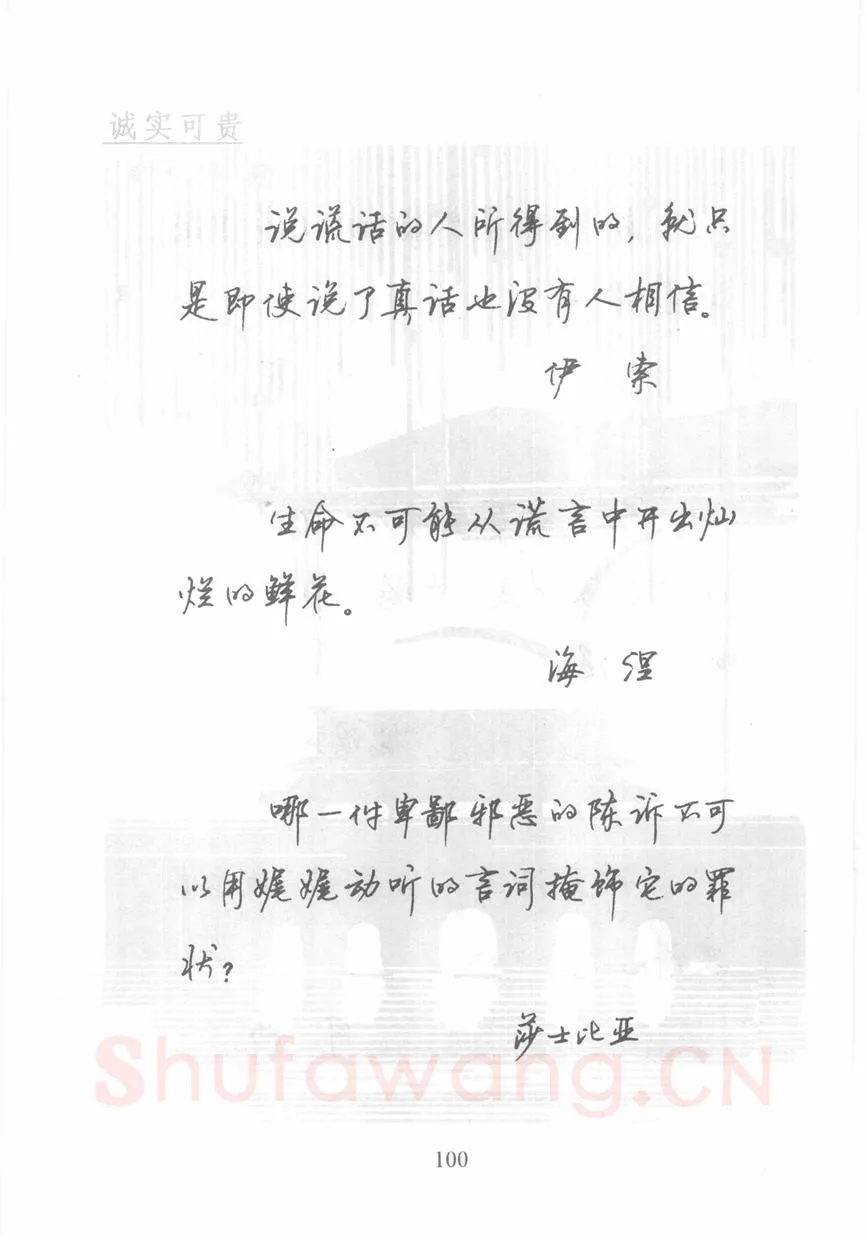 诚实可贵
说谎话的人所得到的，就只
是即使说了真话也没有人相信。
伊 索
生命不可能从谎言中开出灿
烂的鲜花。
海 涅
哪一件卑鄙邪恶的陈诉不可
以用娓娓动听的言词掩饰它的罪
状？
莎士比亚
Shufawang.CN
100